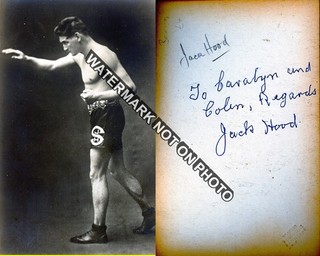 S
WATERMARK NOT ON PHOTO
Jack Hood
To Caralyn and
Colin, Regards
Jack Hood